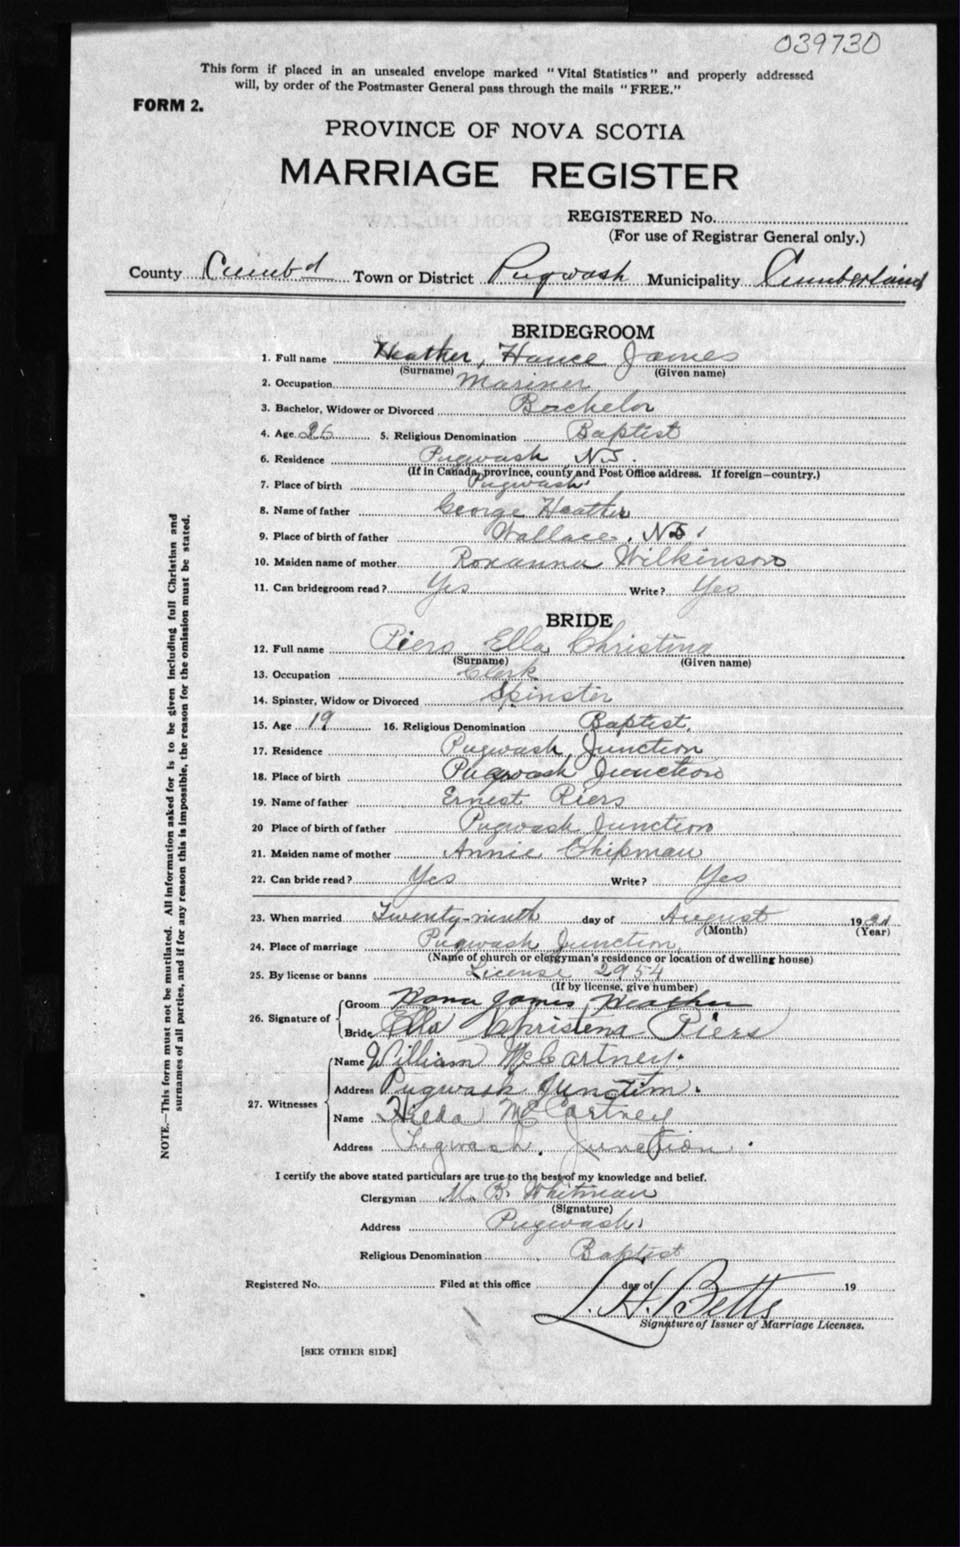 039730
This form if placed in an unsealed envelope marked "Vital Statistics" and properly addressed
will, by order of the Postmaster General pass through the mails "FREE."
FORM 2.
PROVINCE OF NOVA SCOTIA
MARRIAGE REGISTER
REGISTERED No.
(For use of Registrar General only.)
County Cumb'd Town or District Pugwash Municipality Cumberland
BRIDEGROOM
1. Full name Heather, Hance James
(Surname) (Given name)
2. Occupation Mariner
3. Bachelor, Widower or Divorced Bachelor
4. Age 26 5. Religious Denomination Baptist
6. Residence Pugwash N.S.
(If in Canada, province, county and Post Office address. If foreign—country.)
7. Place of birth Pugwash
8. Name of father George Heather
9. Place of birth of father Wallace, N.S.
10. Maiden name of mother Roxanna Wilkinson
11. Can bridegroom read? Yes Write? Yes
BRIDE
12. Full name Piers Ella Christina
(Surname) (Given name)
13. Occupation Clerk
14. Spinster, Widow or Divorced Spinster
15. Age 19 16. Religious Denomination Baptist.
17. Residence Pugwash Junction
18. Place of birth Pugwash Junction
19. Name of father Ernest Piers
20 Place of birth of father Pugwash Junction
21. Maiden name of mother Annie Chipman
22. Can bride read? Yes Write? Yes
23. When married Twenty-ninth day of August 19
(Month) (Year)
24. Place of marriage Pugwash Junction
(Name of church or clergyman's residence or location of dwelling house)
25. By license or banns License 2954
(If by license, give number)
26. Signature of
Groom James Heather
Bride Ella Christena Piers
27. Witnesses
Name William McCartney.
Address Pugwash Junction.
Name Hilda McCartney
Address Pugwash. Junction.
I certify the above stated particulars are true to the best of my knowledge and belief.
Clergyman M. B. Whitman
(Signature)
Address Pugwash
Religious Denomination Baptist
Registered No. Filed at this office day of 19
L. H. Betts
Signature of Issuer of Marriage Licenses.
[SEE OTHER SIDE]
NOTE.—This form must not be mutilated. All information asked for is to be given including full Christian and
surnames of all parties, and if for any reason this is impossible, the reason for the omission must be stated.